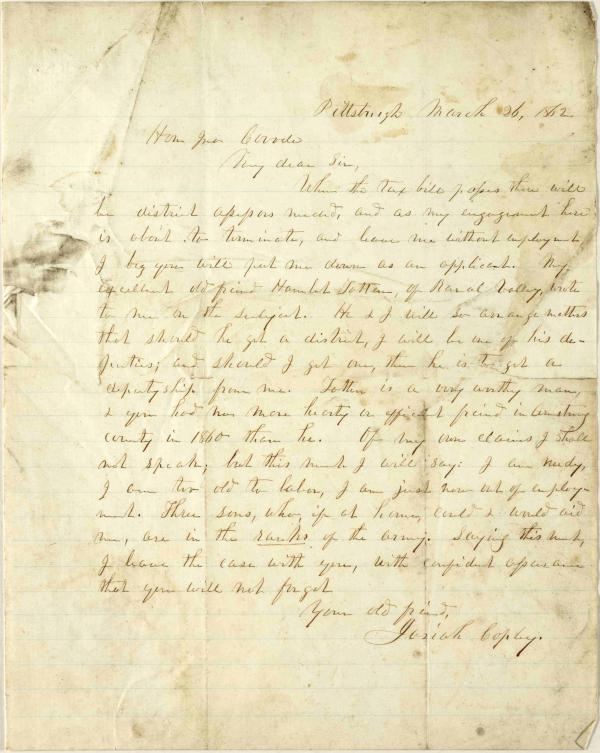 Pittsburgh March 26, 1862
Hon Jno Covode
My dear Sir,
When the tax bill passes there will
be district assessors needed, and as my engagement here
is about to terminate, and leave me without employment,
I beg you will put me down as an applicant. My
excellent old friend Hamlet Totten, of Rural Valley, wrote
to me on the subject. He & I will so arrange matters
that should he get a district, I will be one of his de-
puties; and should I get one, then he is to get a
deputyship from me. Totten is a very worthy man,
& you had no more hearty or efficient friend in Armstrong
county in 1860 than he. Of my own claims I shall
not speak; but this much I will say: I am needy,
I am too old to labor, I am just now out of employ-
ment. Three sons, who, if at home, could & would aid
me, are in the ranks of the army. Saying this much,
I leave the case with you, with confident assurance
that you will not forget
Your old friend,
Josiah Copley.